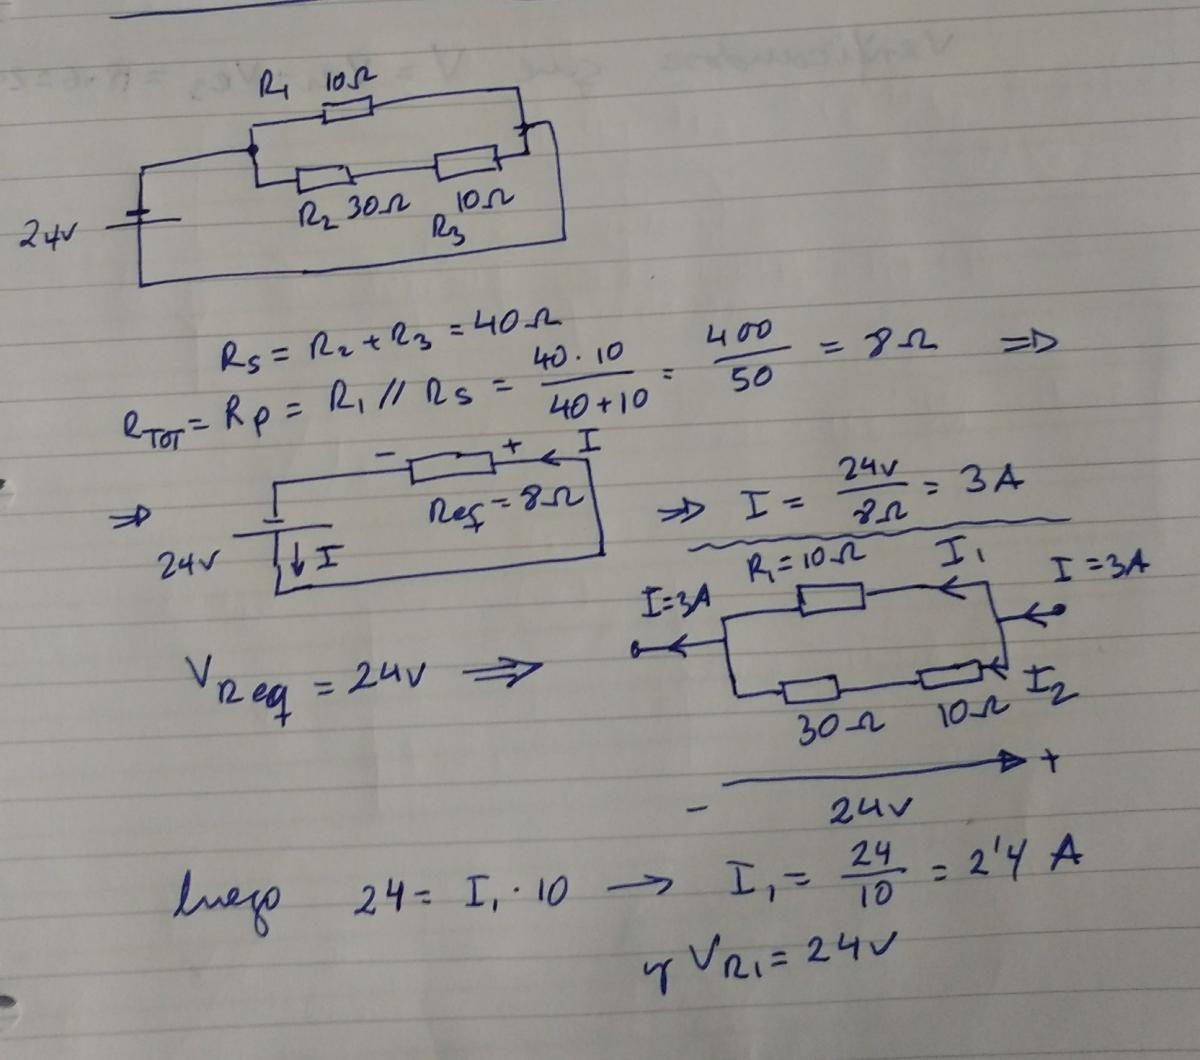 R₁ 10Ω
24v
R₂ 30Ω 10Ω
R₃
R_S = R₂ + R₃ = 40Ω
R_TOT = R_P = R₁ // R_S = 40 · 10 / 40 + 10 = 400 / 50 = 8Ω ⇒
⇒ - + I
24v Req = 8Ω
I
⇒ I = 24v / 8Ω = 3A
R₁ = 10Ω I₁
I = 3A I = 3A
V_Req = 24v ⇒
30Ω 10Ω I₂
- 24v +
luego 24 = I₁ · 10 → I₁ = 24 / 10 = 2'4 A
y V_R₁ = 24v